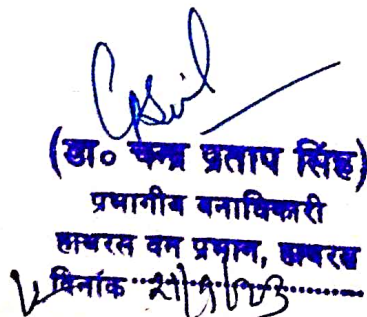 (डा० चन्द्र प्रताप सिंह)
प्रभागीय वनाधिकारी
हाथरस वन प्रभाग, हाथरस
दिनांक